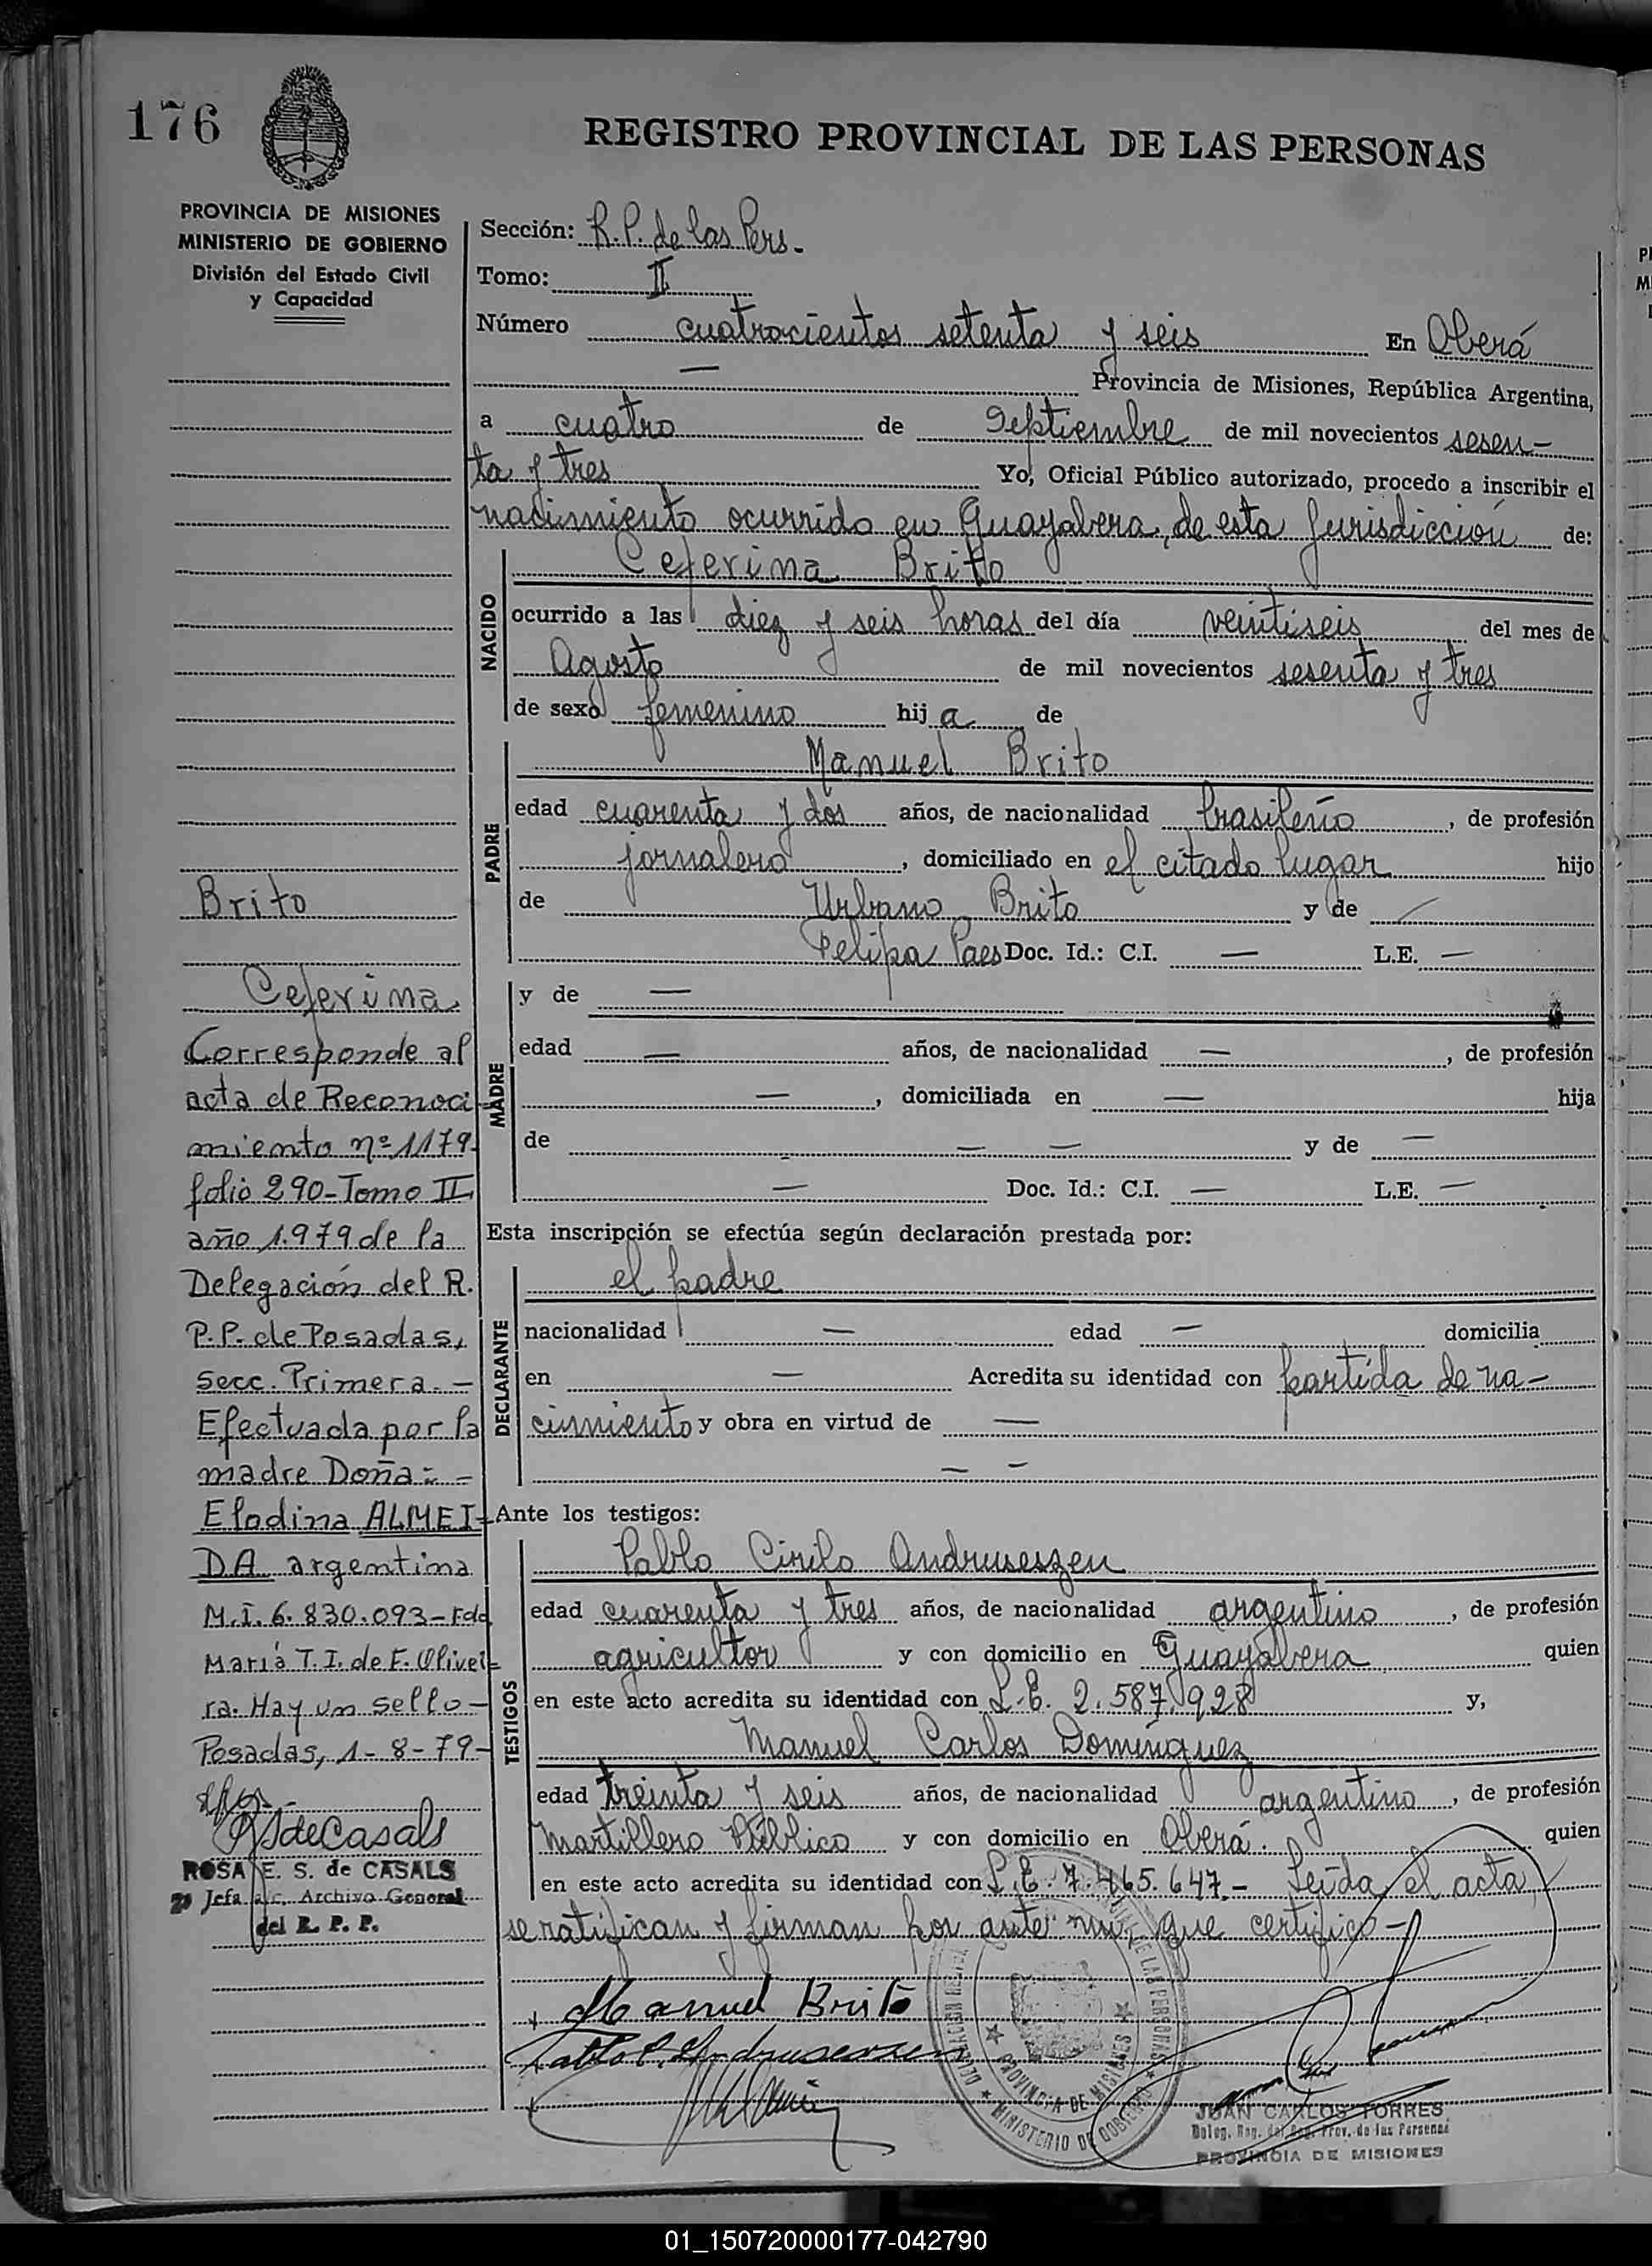 176
REGISTRO PROVINCIAL DE LAS PERSONAS
PROVINCIA DE MISIONES
MINISTERIO DE GOBIERNO
División del Estado Civil
y Capacidad
Sección: R.P. de las Pers.
Tomo: II
Número cuatrocientos setenta y seis En Oberá
— Provincia de Misiones, República Argentina,
a cuatro de Septiembre de mil novecientos sesen-
ta y tres Yo, Oficial Público autorizado, procedo a inscribir el
nacimiento ocurrido en Guayabera, de esta Jurisdicción de:
NACIDO
Ceferina Brito
ocurrido a las diez y seis horas del día veintiseis del mes de
Agosto de mil novecientos sesenta y tres
de sexo femenino hija de
PADRE
Manuel Brito
edad cuarenta y dos años, de nacionalidad brasileño, de profesión
jornalero, domiciliado en el citado lugar hijo
de Urbano Brito y de
Felipa Paes Doc. Id.: C.I. — L.E. —
MADRE
y de —
edad — años, de nacionalidad —, de profesión
—, domiciliada en — hija
de — — y de —
— Doc. Id.: C.I. — L.E. —
Esta inscripción se efectúa según declaración prestada por:
DECLARANTE
el padre
nacionalidad — edad — domicilia
en — Acredita su identidad con partida de na-
cimiento y obra en virtud de —
— —
Ante los testigos:
TESTIGOS
Pablo Cirilo Andruseszen
edad cuarenta y tres años, de nacionalidad argentino, de profesión
agricultor y con domicilio en Guayabera quien
en este acto acredita su identidad con L.E. 2.587.928 y,
Manuel Carlos Dominguez
edad treinta y seis años, de nacionalidad argentino, de profesión
Martillero Público y con domicilio en Oberá. quien
en este acto acredita su identidad con L.E. 7.465.647.- Leída el acta,
se ratifican y firman por ante mi, que certifico-
Manuel Brito
Pablo C. Andruseszen
MINISTERIO DE GOBIERNO
PROVINCIA DE MISIONES
DE LAS PERSONAS
JUAN CARLOS TORRES
Deleg. Reg. del Reg. Prov. de las Personas
PROVINCIA DE MISIONES
Brito
Ceferina
Corresponde al
acta de Reconoci
miento nº 1179.
folio 290-Tomo II
año 1.979 de la
Delegación del R.
P.P. de Posadas,
secc. Primera.-
Efectuada por la
madre Doña:-
Elodina ALMEI-
DA argentina
M.I. 6.830.093-Fdo
María T. I. de F. Olivei-
ra. Hay un sello-
Posadas, 1-8-79-
RSdeCasals
ROSA E. S. de CASALS
Jefa a/c. Archivo General
del R. P. P.
01_150720000177-042790